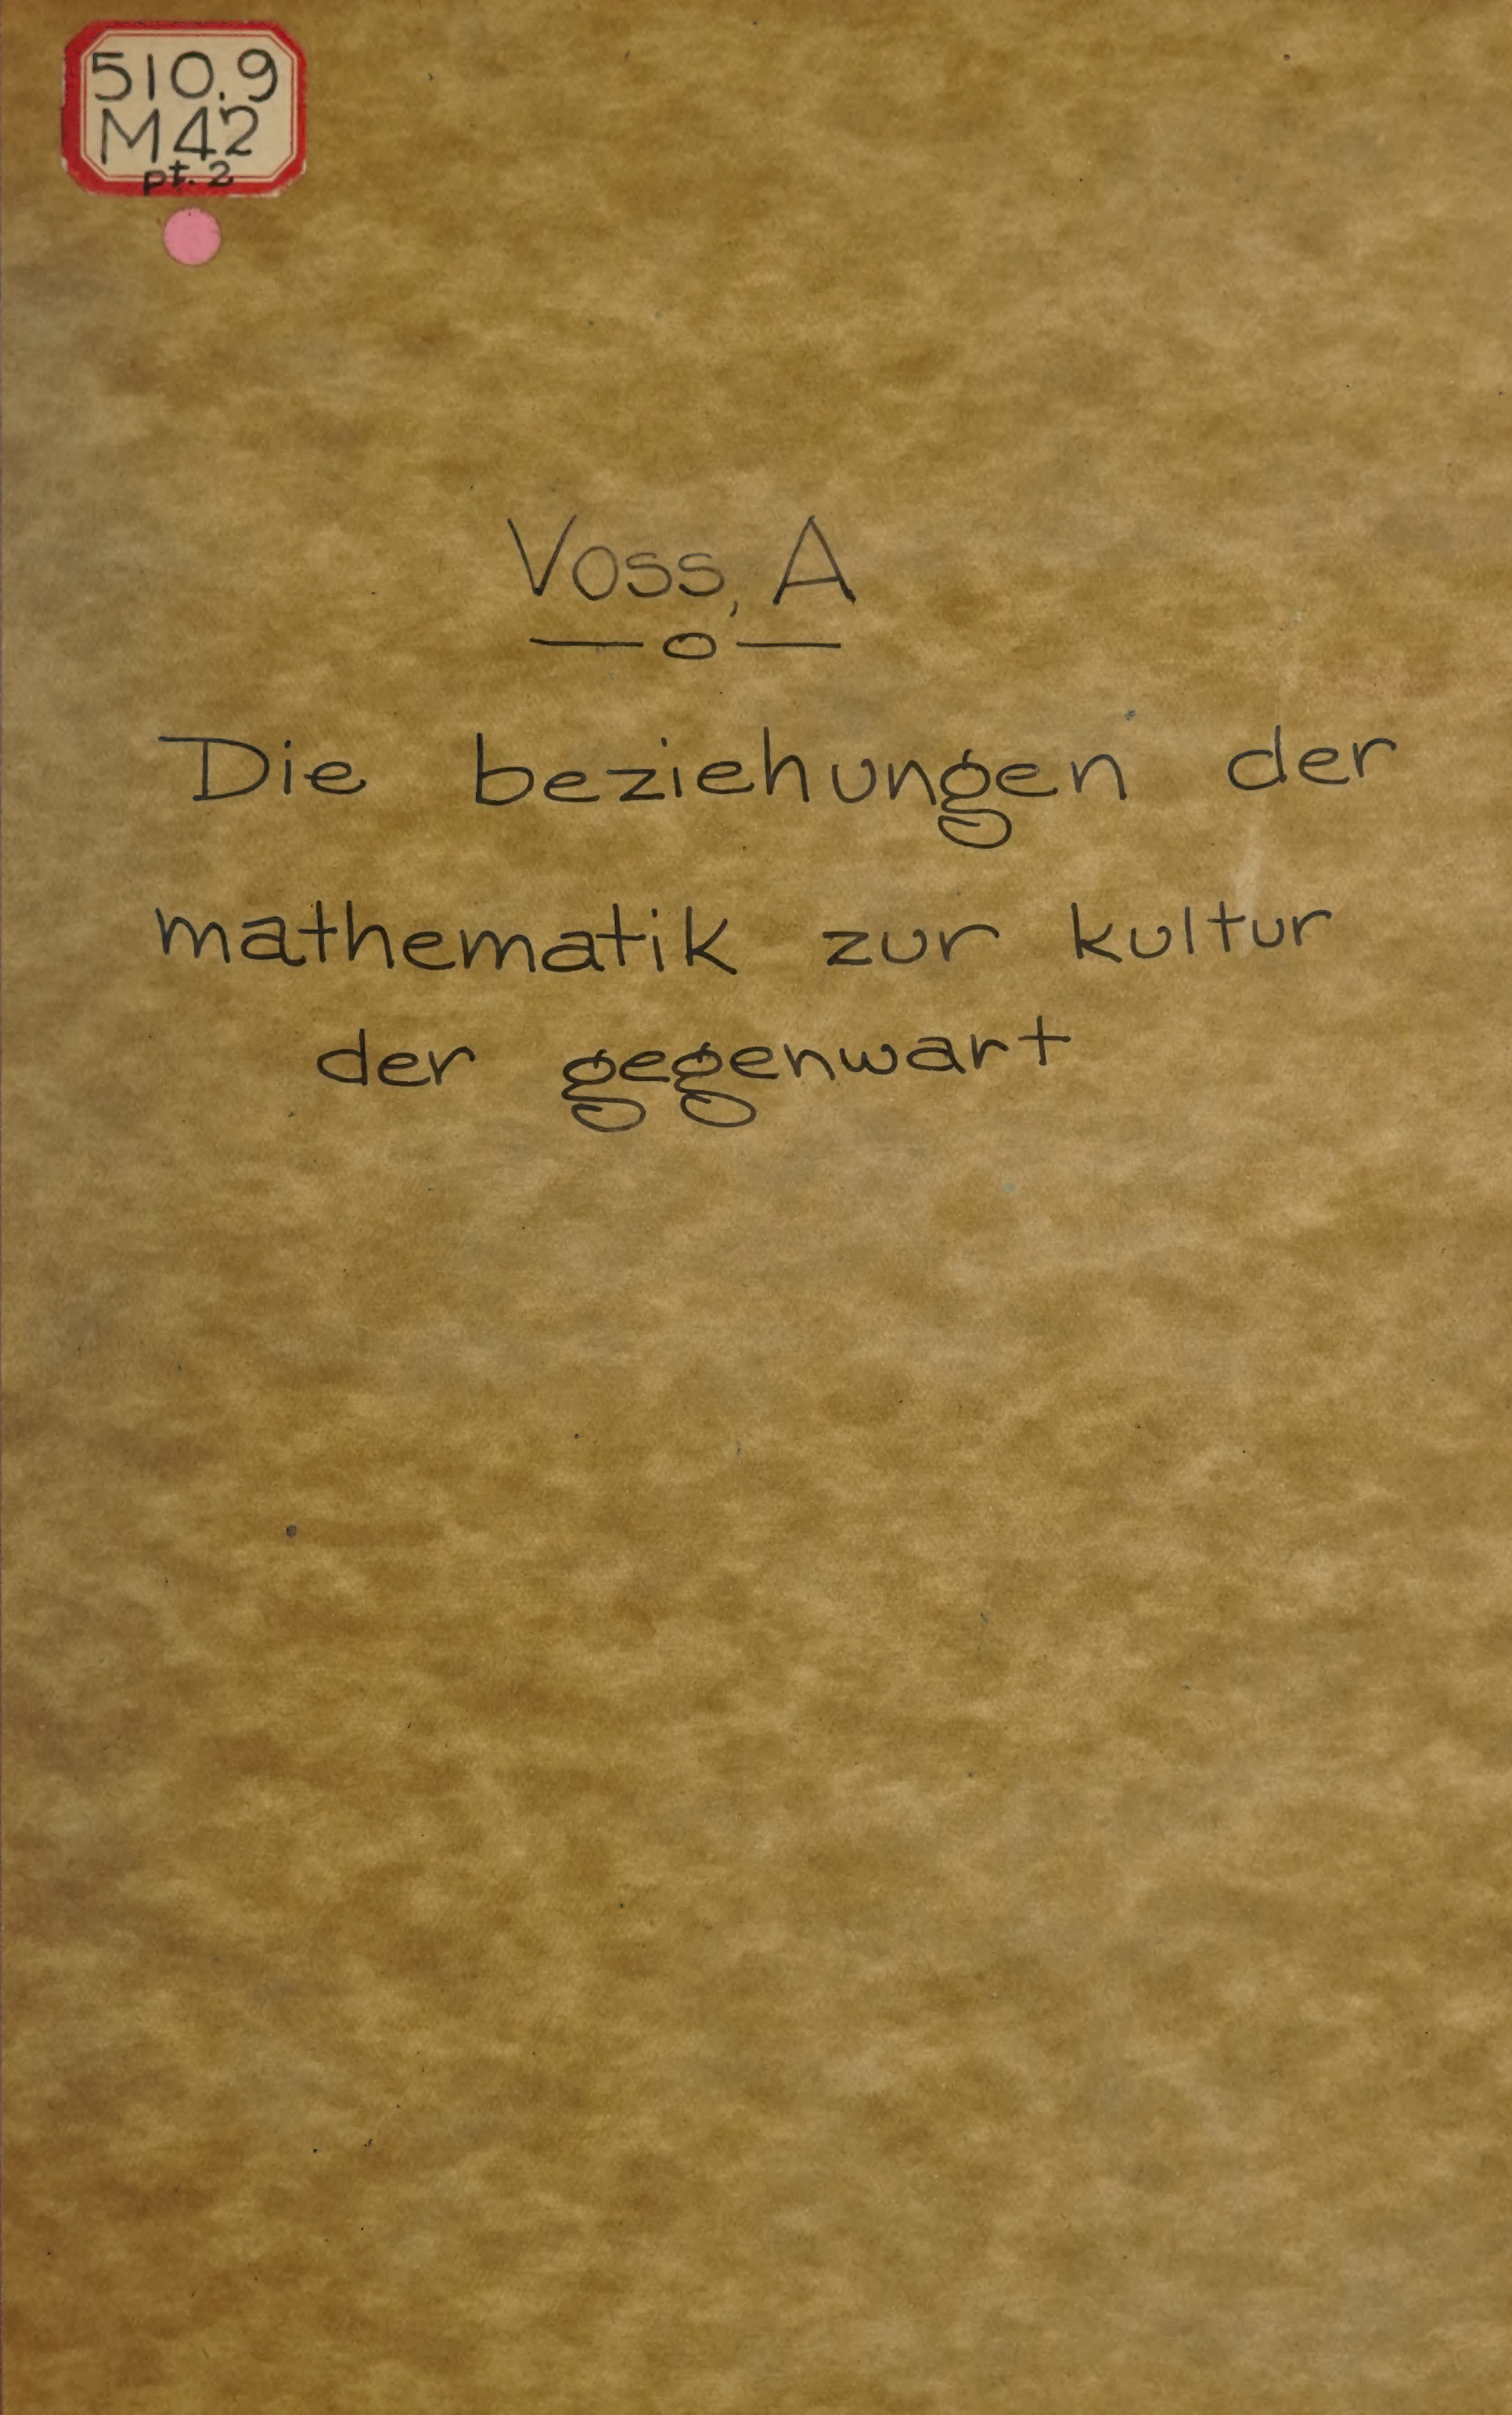 510.9
M42
pt. 2
Voss, A
Die beziehungen der
mathematik zur kultur
der gegenwart